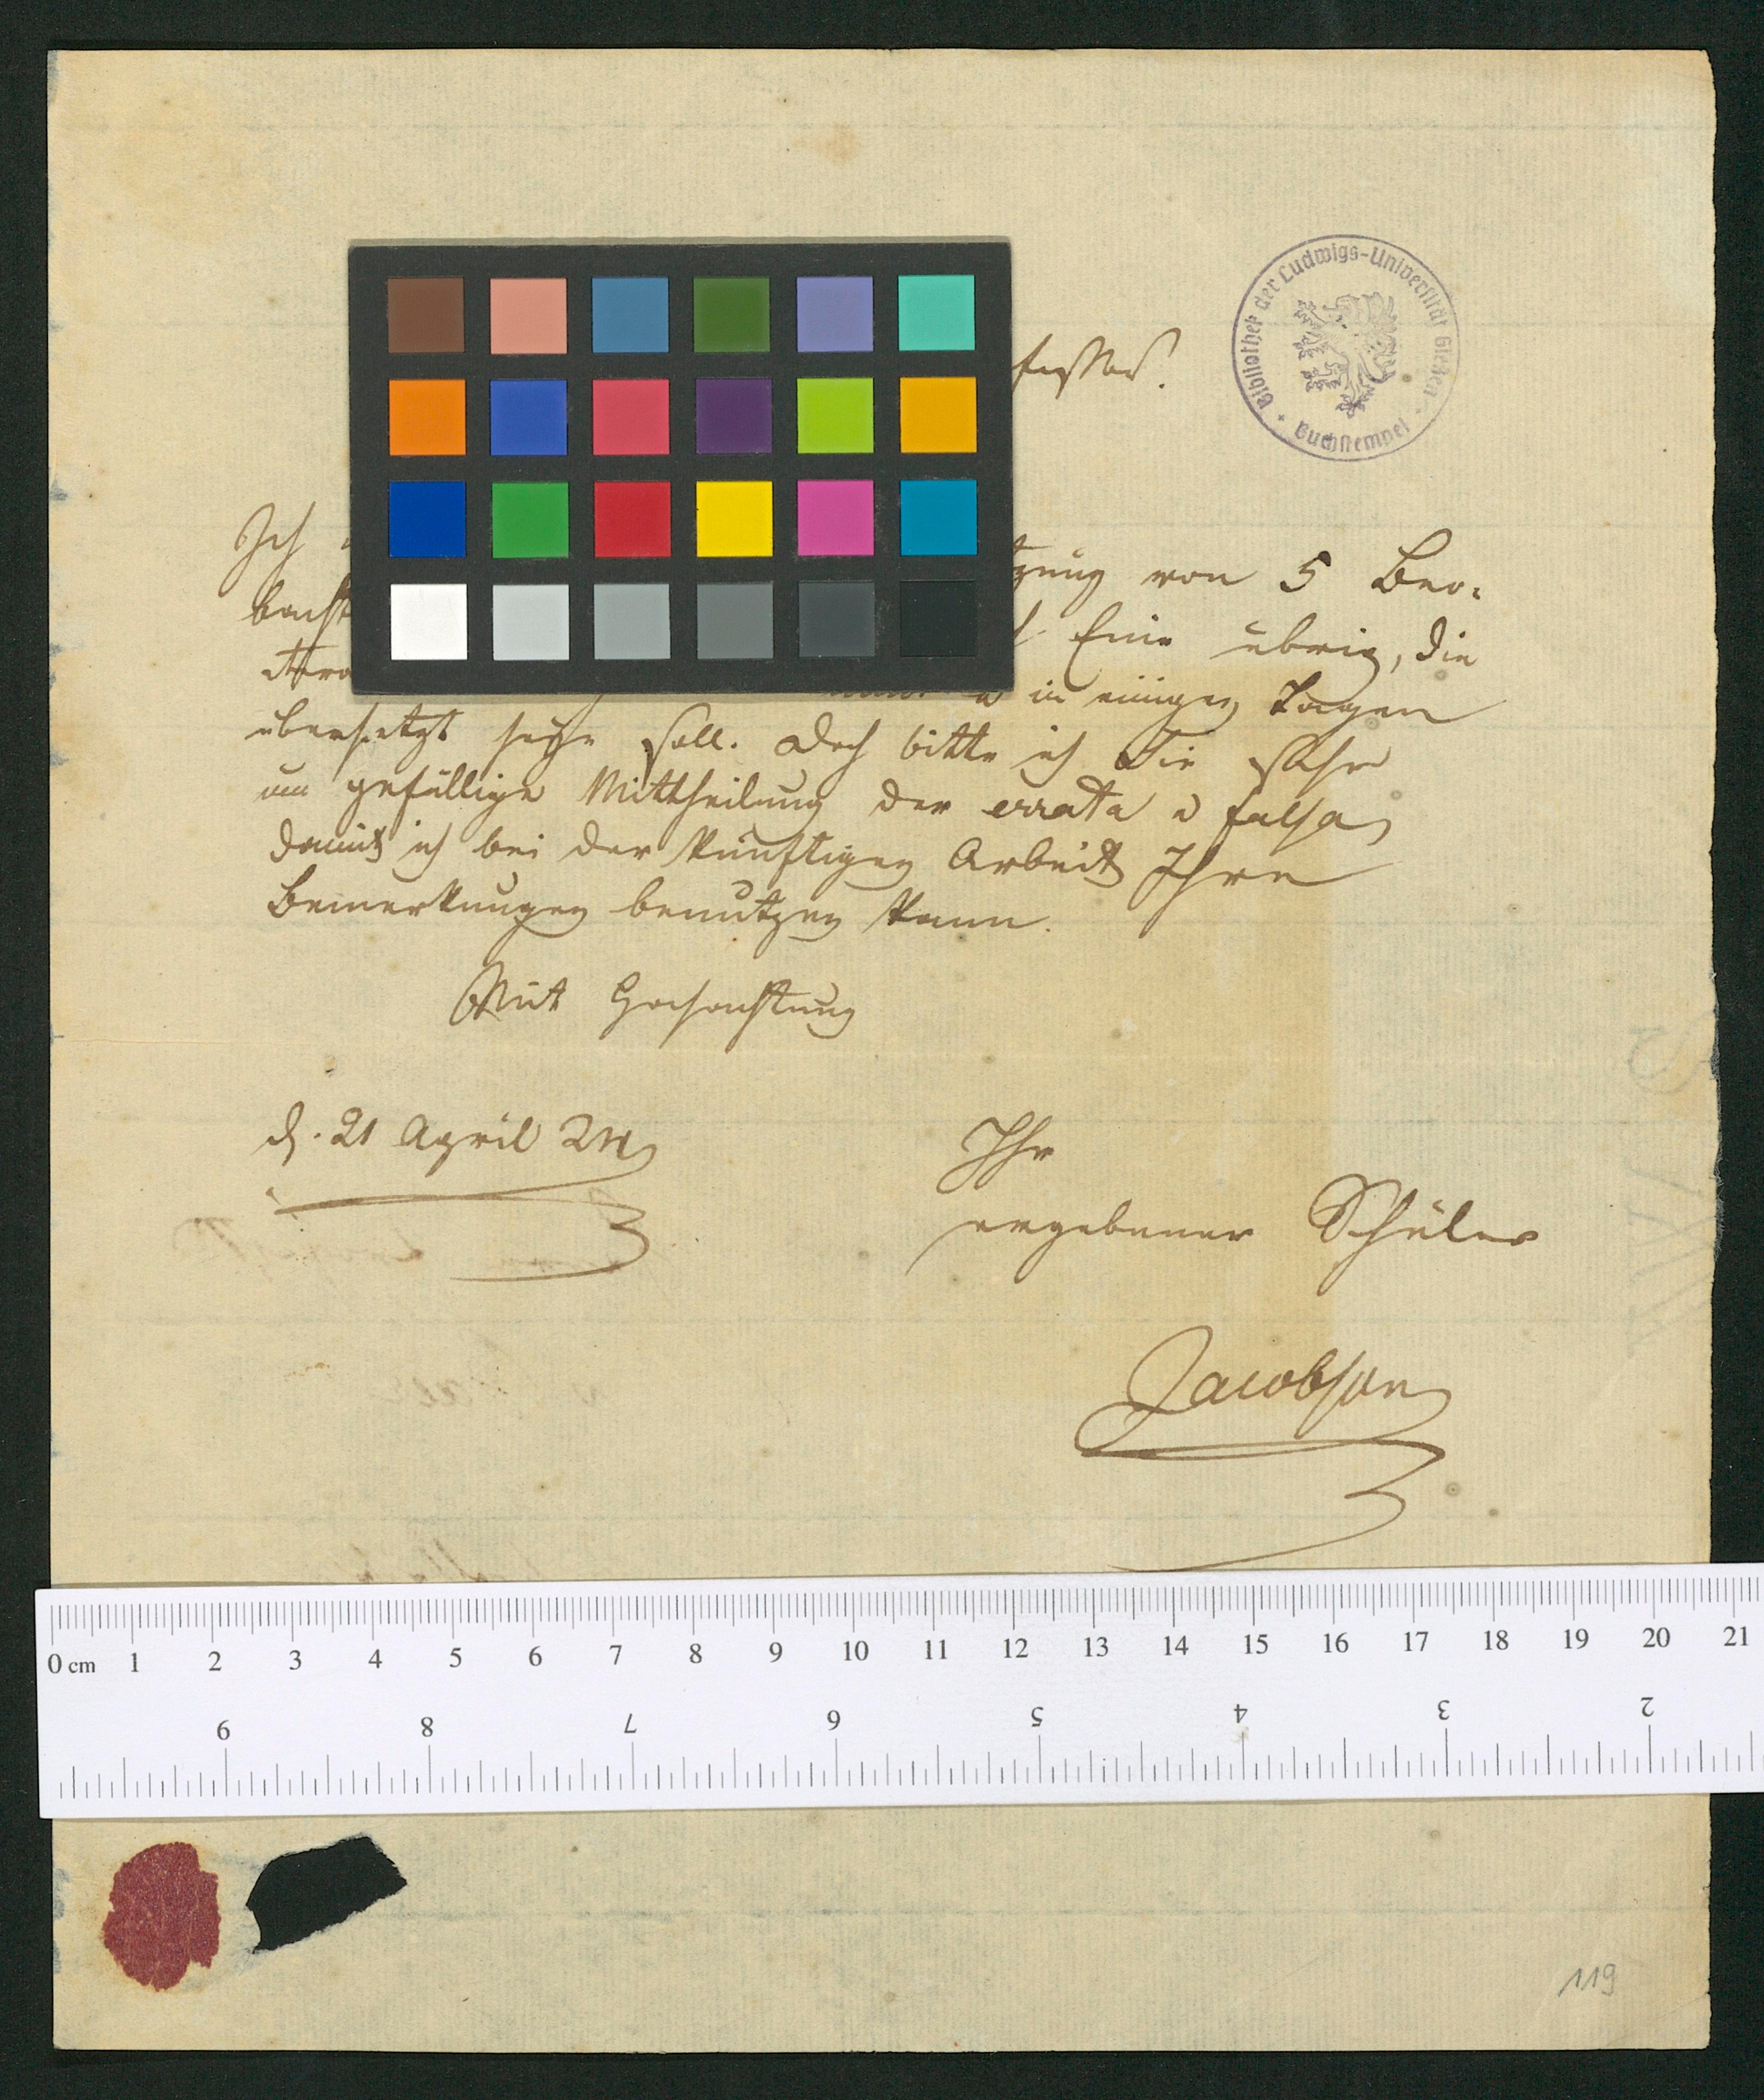 Bibliothek der Ludwigs-Universität Gießen
Buchstempel
fessor!
Ich
tzung von 5 Beo-
bacht
Eine übrig, die
in einigen Tagen
übersetzt seyn soll. Doch bitte ich Sie sehr
um gefällige Mittheilung der errata u falsa,
damit ich bei der künftigen Arbeit Ihre
Bemerkungen benutzen kann.
Mit Hochachtung
d. 21 April 24
Ihr
ergebener Schüler
Jacobson
0 cm 1 2 3 4 5 6 7 8 9 10 11 12 13 14 15 16 17 18 19 20 21
9 8 7 6 5 4 3 2
119